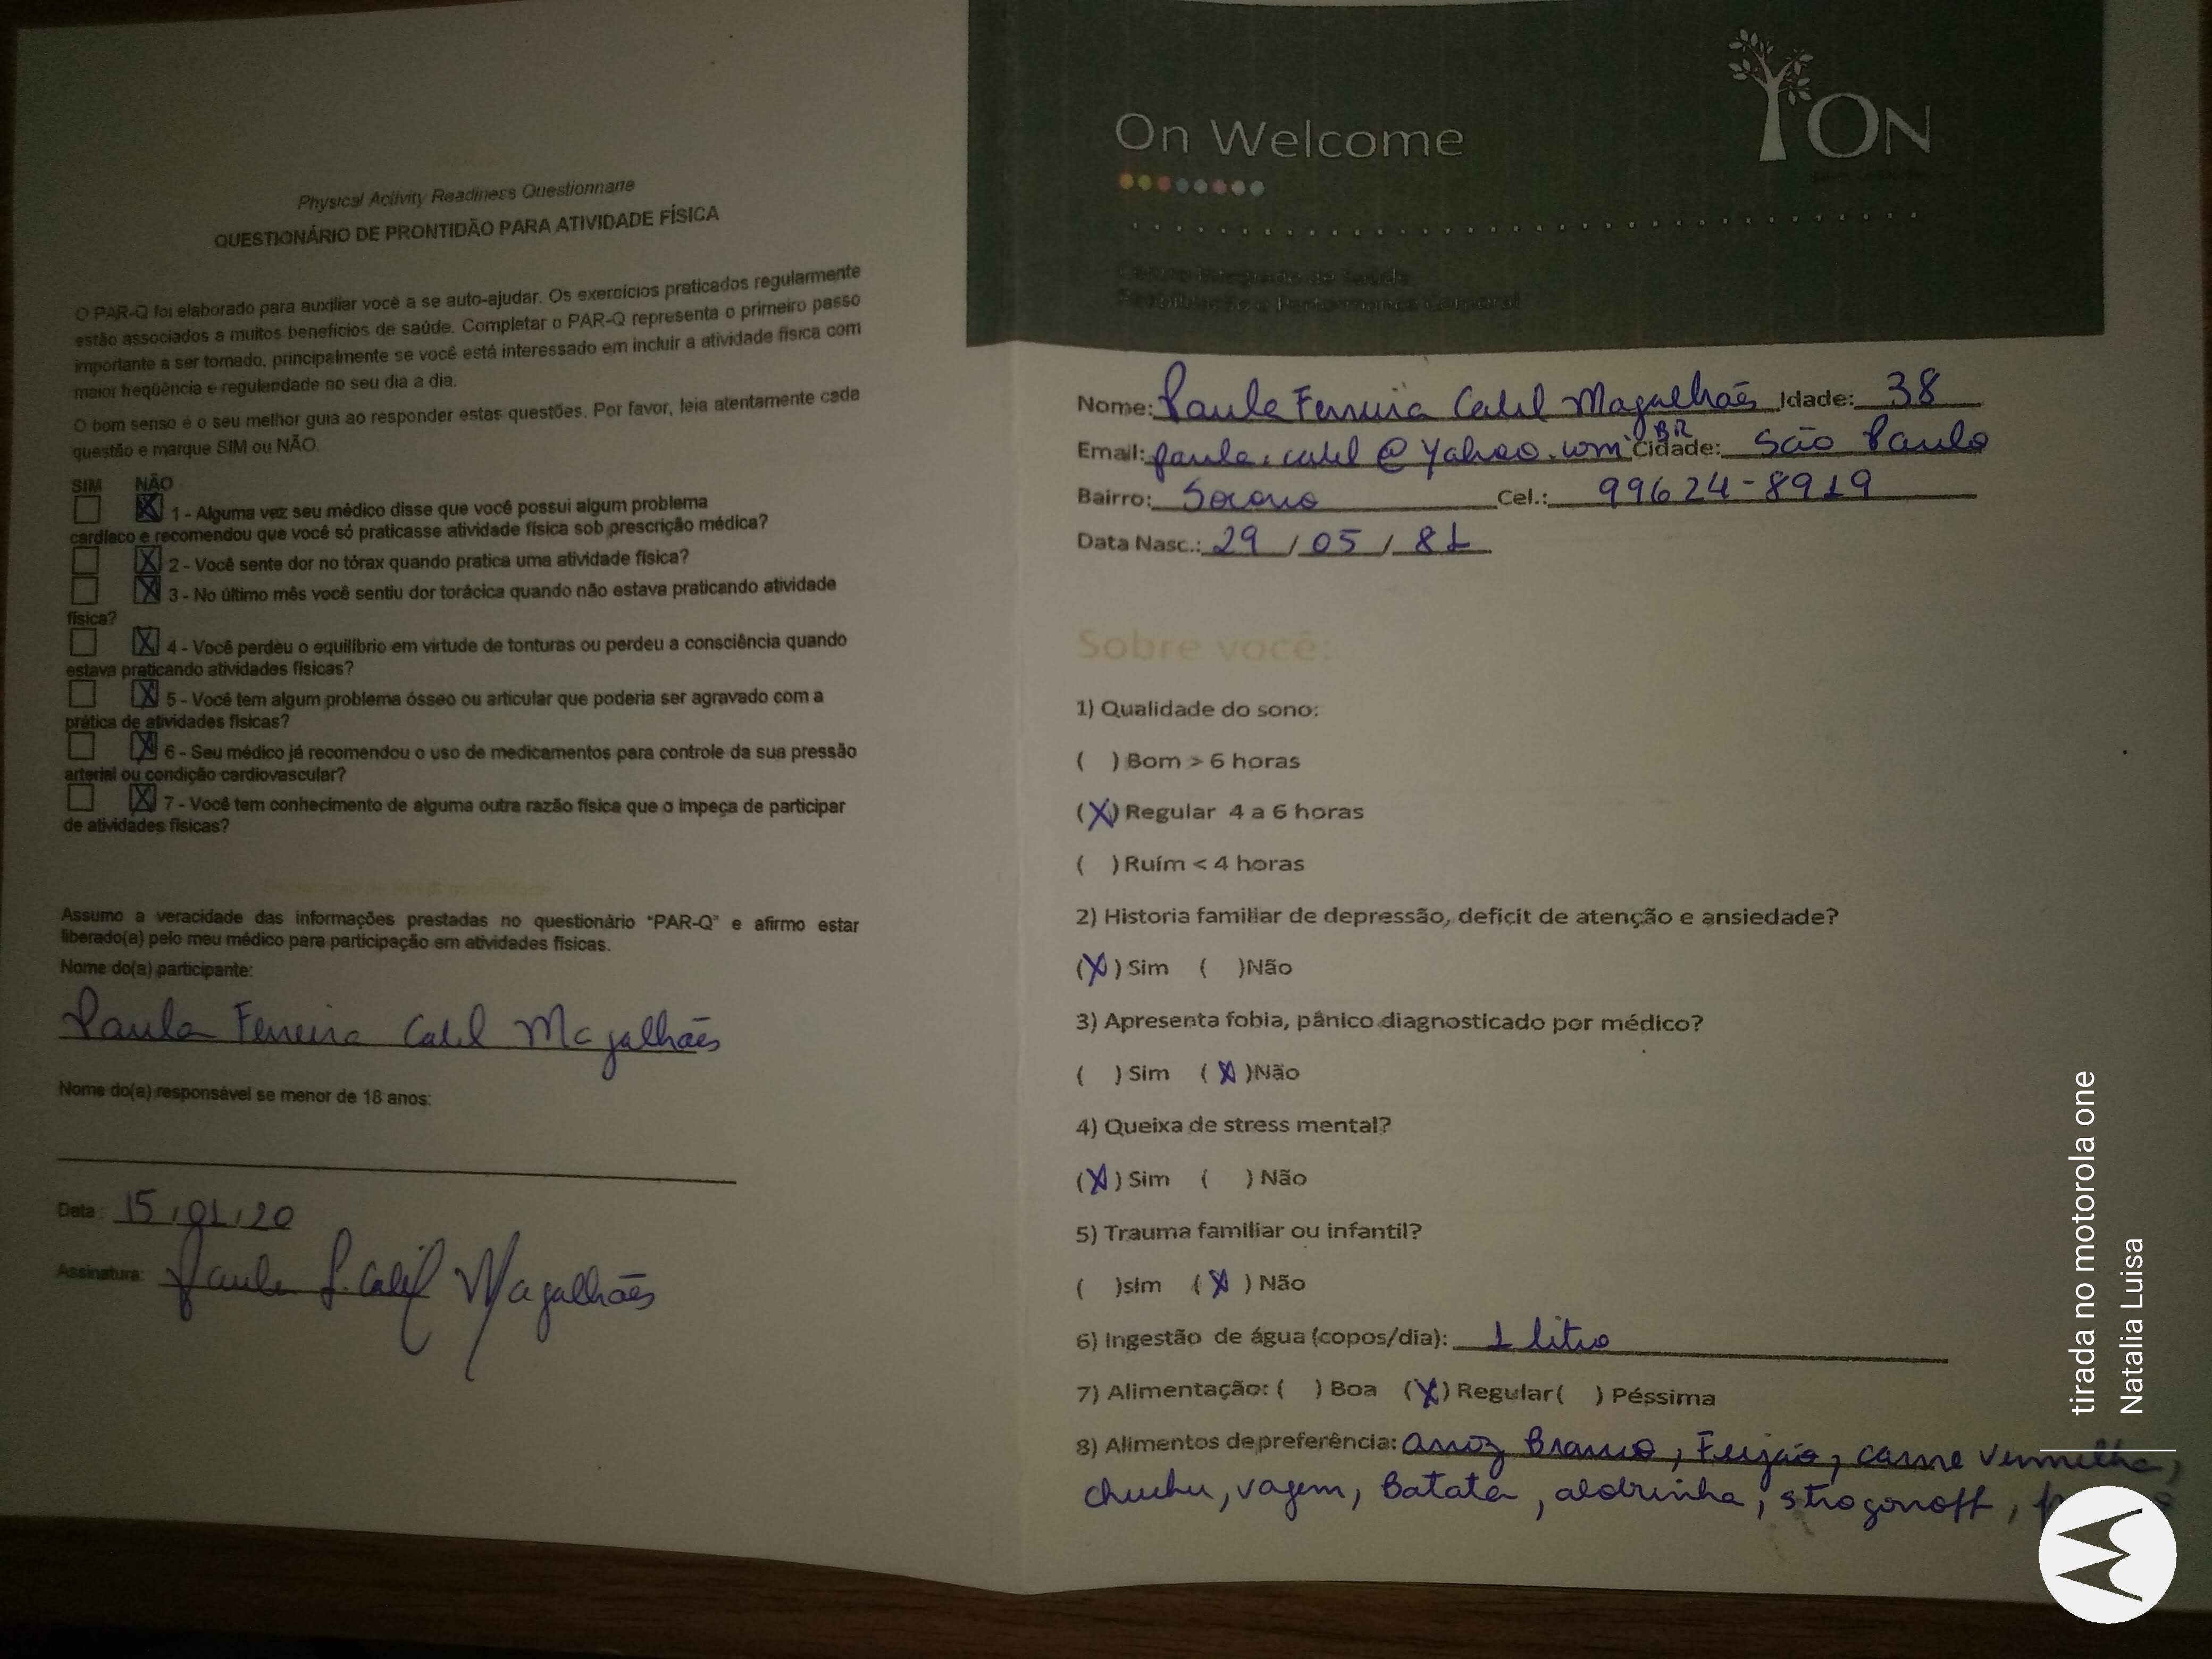 Physical Activity Readiness Questionnaire
QUESTIONÁRIO DE PRONTIDÃO PARA ATIVIDADE FÍSICA
O PAR-Q foi elaborado para auxiliar você a se auto-ajudar. Os exercícios praticados regularmente
estão associados a muitos benefícios de saúde. Completar o PAR-Q representa o primeiro passo
importante a ser tomado, principalmente se você está interessado em incluir a atividade física com
maior freqüência e regularidade no seu dia a dia.
O bom senso é o seu melhor guia ao responder estas questões. Por favor, leia atentamente cada
questão e marque SIM ou NÃO.
SIM NÃO
X 1 - Alguma vez seu médico disse que você possui algum problema
cardíaco e recomendou que você só praticasse atividade física sob prescrição médica?
X 2 - Você sente dor no tórax quando pratica uma atividade física?
X 3 - No último mês você sentiu dor torácica quando não estava praticando atividade
física?
X 4 - Você perdeu o equilíbrio em virtude de tonturas ou perdeu a consciência quando
estava praticando atividades físicas?
X 5 - Você tem algum problema ósseo ou articular que poderia ser agravado com a
prática de atividades físicas?
X 6 - Seu médico já reomendou o uso de medicamentos para controle da sua pressão
arterial ou condição cardiovascular?
X 7 - Você tem conhecimento de alguma outra razão física que o impeça de participar
de atividades físicas?
Assumo a veracidade das informações prestadas no questionário "PAR-Q" e afirmo estar
liberado(a) pelo meu médico para participação em atividades físicas.
Nome do(a) participante:
Paula Ferreira Calil Magalhães
Nome do(a) responsável se menor de 18 anos:
Data: 15,01,20
Assinatura: Paula F. Calil Magalhães
On Welcome
ON
Nome: Paula Ferreira Calil Magalhães Idade: 38
Email: paula.calil@yahoo.com.BR Cidade: São Paulo
Bairro: Socorro Cel.: 99624-8919
Data Nasc.: 29/05/81
Sobre você:
1) Qualidade do sono:
( ) Bom > 6 horas
(X) Regular 4 a 6 horas
( ) Ruím < 4 horas
2) Historia familiar de depressão, deficit de atenção e ansiedade?
(X) Sim ( )Não
3) Apresenta fobia, pânico diagnosticado por médico?
( ) Sim (X)Não
4) Queixa de stress mental?
(X) Sim ( ) Não
5) Trauma familiar ou infantil?
( )sim (X) Não
6) Ingestão de água (copos/dia): 1 litro
7) Alimentação: ( ) Boa (X) Regular( ) Péssima
8) Alimentos de preferência: arroz Branco, Feijão, carne vermelha,
chuchu, vagem, Batata, abobrinha, strogonoff,
tirada no motorola one
Natalia Luisa